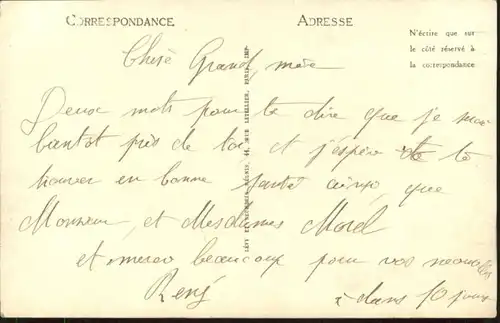 CORRESPONDANCE
ADRESSE
N'écrire que sur
le côté réservé à
la correspondance
Cherè Grand, mère
Deux mots pour te dire que je serai
bantot près de toi, et j'espère te
trouver en bonne santé ainsi, que
Monsieur, et Mesdames Morel
et merci beaucoup pour vos nouvelles
René
à dans 10 jours